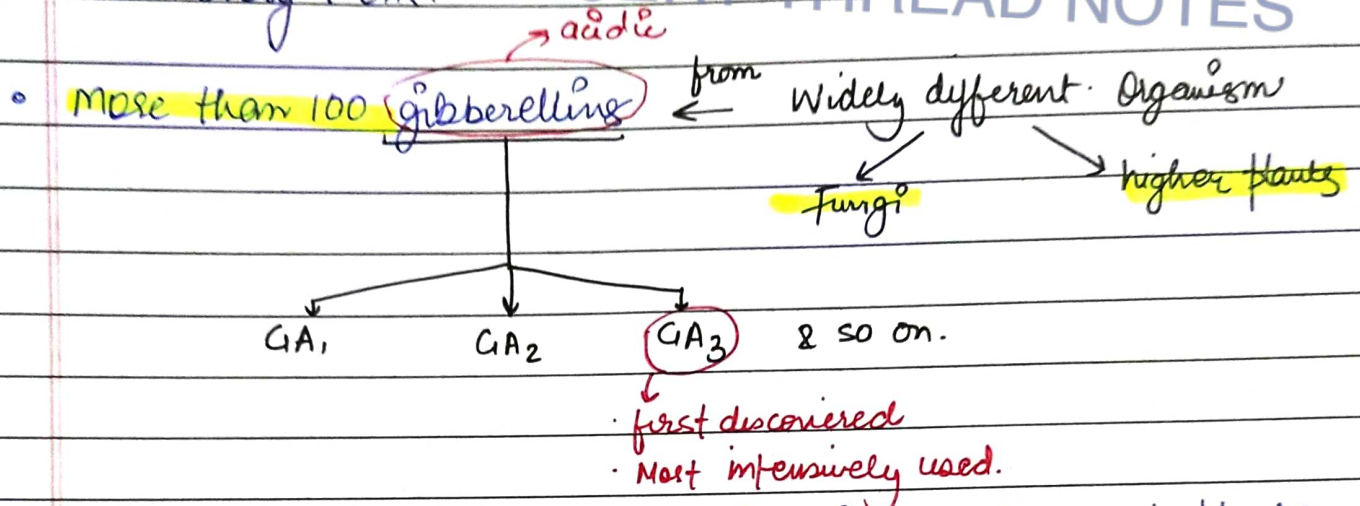 THREAD NOTES
acidic
• More than 100 gibberellins ← from Widely different Organism
Fungi
higher plants
GA1 GA2 GA3 & so on.
· first discovered
· Most intensively used.